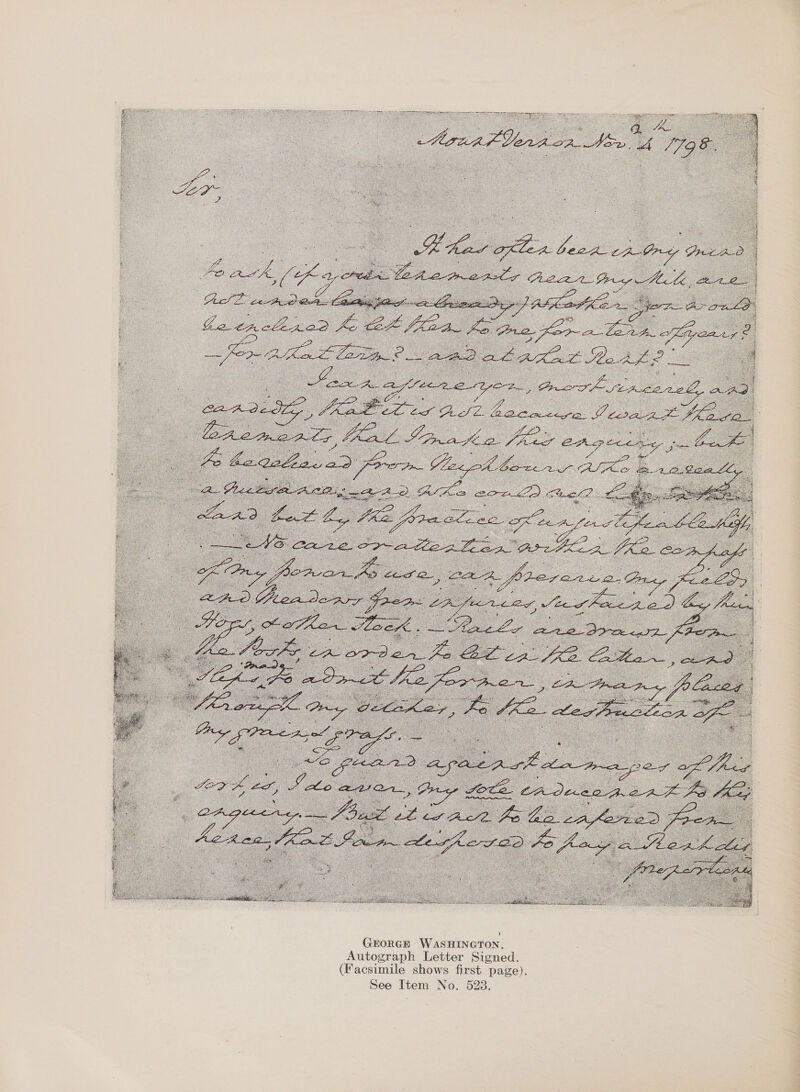 Mount Vernon Nov. 4th 1798.
Sir,
It has often been in my mind
to ask, (if your tenements near my Mill, are
not under leases already) whether you would
be enclined to let them to me, for a term of years?
— for what term? — and at what Rent? —
I can assure you, most sincerely and
candidly, that it is not because I want these
tenements, that I make this enquiry; — but
to be relieved from Neighbours who are really
a nuisance; — and who could not
land but by the practice of unjustifiable shifts
— No care or attention within the compass
of my power to use, can preserve my fields
and Meadows from injuries, sustained by their
Hogs, & other Stock. — Rails are drawn from
the Posts, in order to let in the latter, and
slips made, to admit the former, in many places
through my ditches, to the destruction of
my grain & grass. —
To guard against damages of this
sort, is, I do aver, my sole inducement to this
enquiry. — But it is not to be infered from
hence, that I am disposed to pay a Rent dis
proportione
GEORGE WASHINGTON.
Autograph Letter Signed.
(Facsimile shows first page).
See Item No. 523.